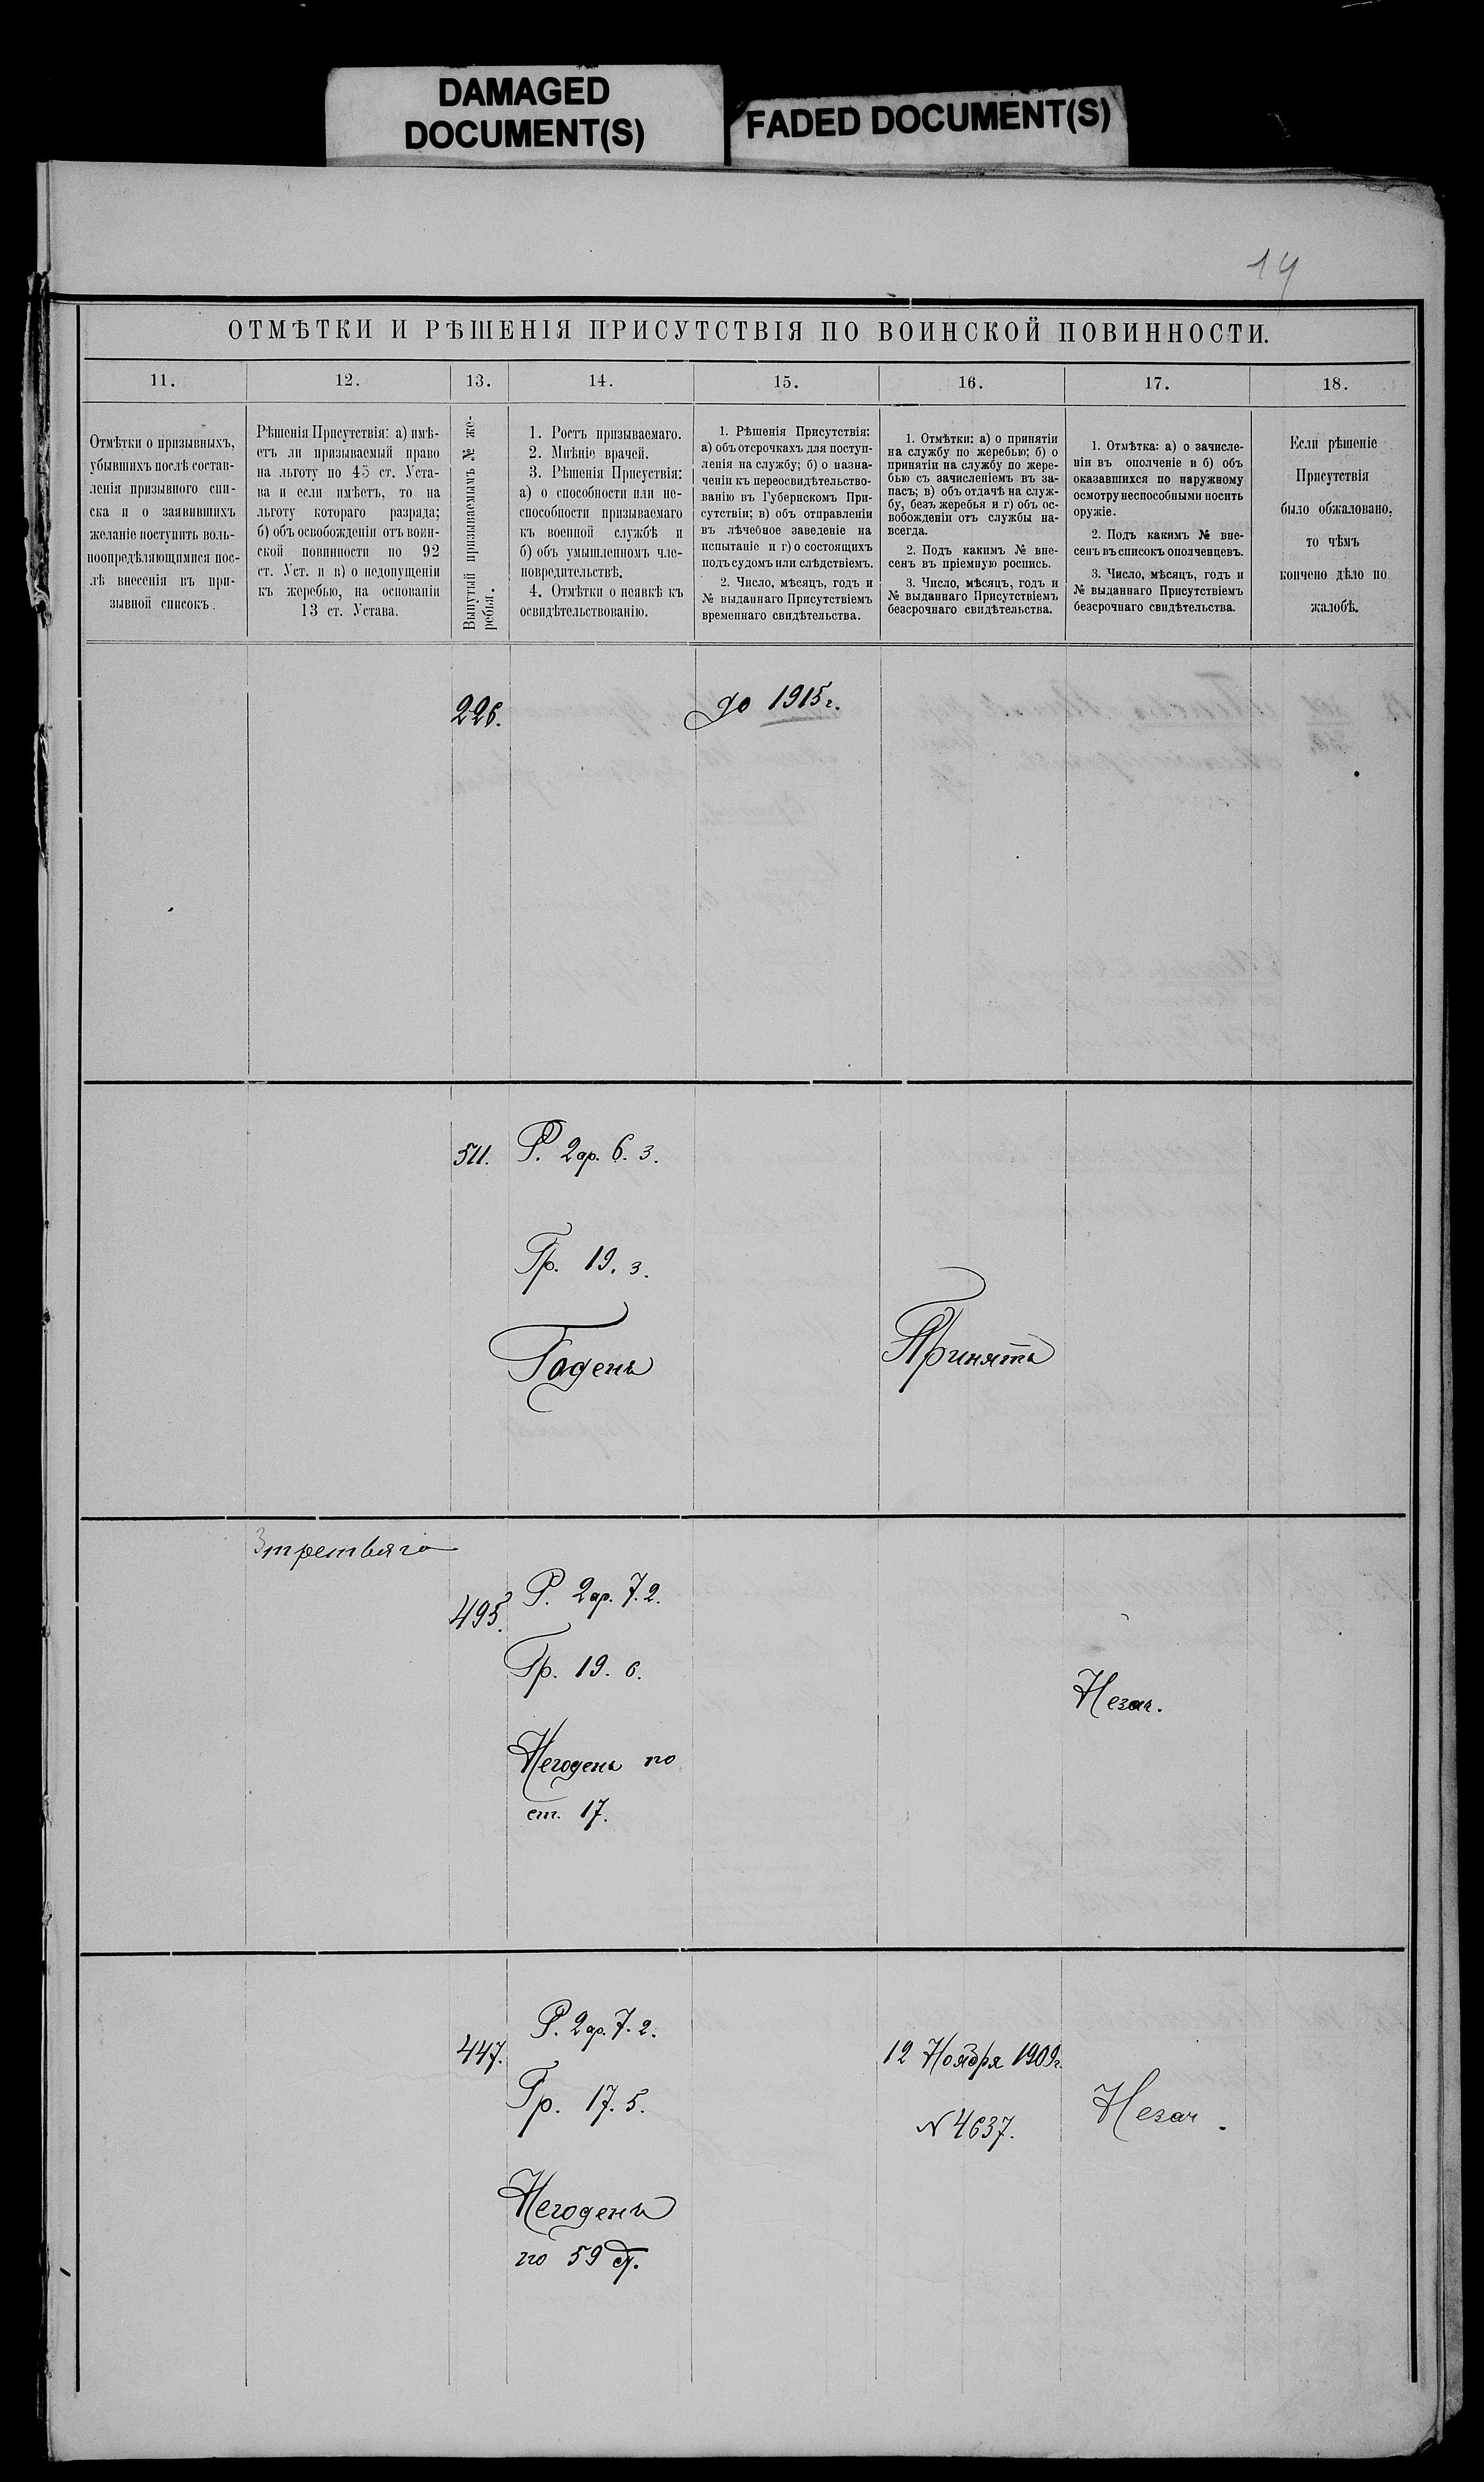 DAMAGED
DOCUMENT(S)
FADED DOCUMENT(S)
14
ОТМѢТКИ И РѢШЕНІЯ ПРИСУТСТВІЯ ПО ВОИНСКОЙ ПОВИННОСТИ.
11.
12.
13.
14.
15.
16.
17.
18.
Отмѣтки о призывныхъ,
убывшихъ послѣ состав-
ленія призывного спи-
ска и о заявившихъ
желаніе поступить воль-
ноопредѣляющимися пос-
лѣ внесенія въ при-
зывной списокъ.
Рѣшенія Присутствія: а) имѣ-
етъ ли призываемый право
на льготу по 45 ст. Уста-
ва и если имѣетъ, то на
льготу котораго разряда;
б) объ освобожденіи отъ воин-
ской повинности по 92
ст. Уст. и в) о недопущеніи
къ жеребью, на основаніи
13 ст. Устава.
Вынутый призываемымъ № же-
ребья.
1. Ростъ призываемаго.
2. Мнѣніе врачей.
3. Рѣшенія Присуствія:
а) о способности или не-
способности призываемаго
къ военной службѣ и
б) объ умышленномъ чле-
новредительствѣ.
4. Отмѣтки о неявкѣ къ
освидѣтельствованію.
1. Рѣшенія Присутствія:
а) объ отсрочкахъ для поступ-
ленія на службу; б) о назна-
ченіи къ переосвидѣтельство-
ванію въ Губернскомъ При-
сутствіи; в) объ отправленіи
въ лѣчебное заведеніе на
испытаніе и г) о состоящихъ
подъ судомъ или слѣдствіемъ.
2. Число, мѣсяцъ, годъ и
№ выданнаго Присутствіемъ
временнаго свидѣтельства.
1. Отмѣтки: а) о принятіи
на службу по жеребью; б) о
принятіи на службу по жере-
бью съ зачисленіемъ въ за-
пасъ; в) объ отдачѣ на служ-
бу, безъ жеребья и г) объ ос-
вобожденіи отъ службы на-
всегда.
2. Подъ какимъ № вне-
сенъ въ пріемную роспись.
3. Число, мѣсяцъ, годъ и
№ выданнаго Присутствіемъ
безсрочнаго свидѣтельства.
1. Отмѣтка: а) о зачисле-
ніи въ ополченіе и б) объ
оказавшихся по наружному
осмотру неспособными носить
оружіе.
2. Подъ какимъ № вне-
сенъ въ списокъ ополченцевъ.
3. Число, мѣсяцъ, годъ и
№ выданнаго Присутствіемъ
безсрочнаго свидѣтельства.
Если рѣшеніе
Присутствія
было обжаловано,
то чѣмъ
кончено дѣло по
жалобѣ.
226.
до 1915 г.
511.
Р. 2 ар. 6. 3.
Гр. 19. 3.
Годенъ
Принятъ
третьяго
495.
Р. 2 ар. 7. 2.
Гр. 19. 6.
Негоденъ по
ст. 17.
Незач.
447.
Р. 2 ар. 7. 2.
Гр. 17. 5.
Негоденъ
по 59 ст.
12 Ноября 1909 г.
N 4637.
Незач.